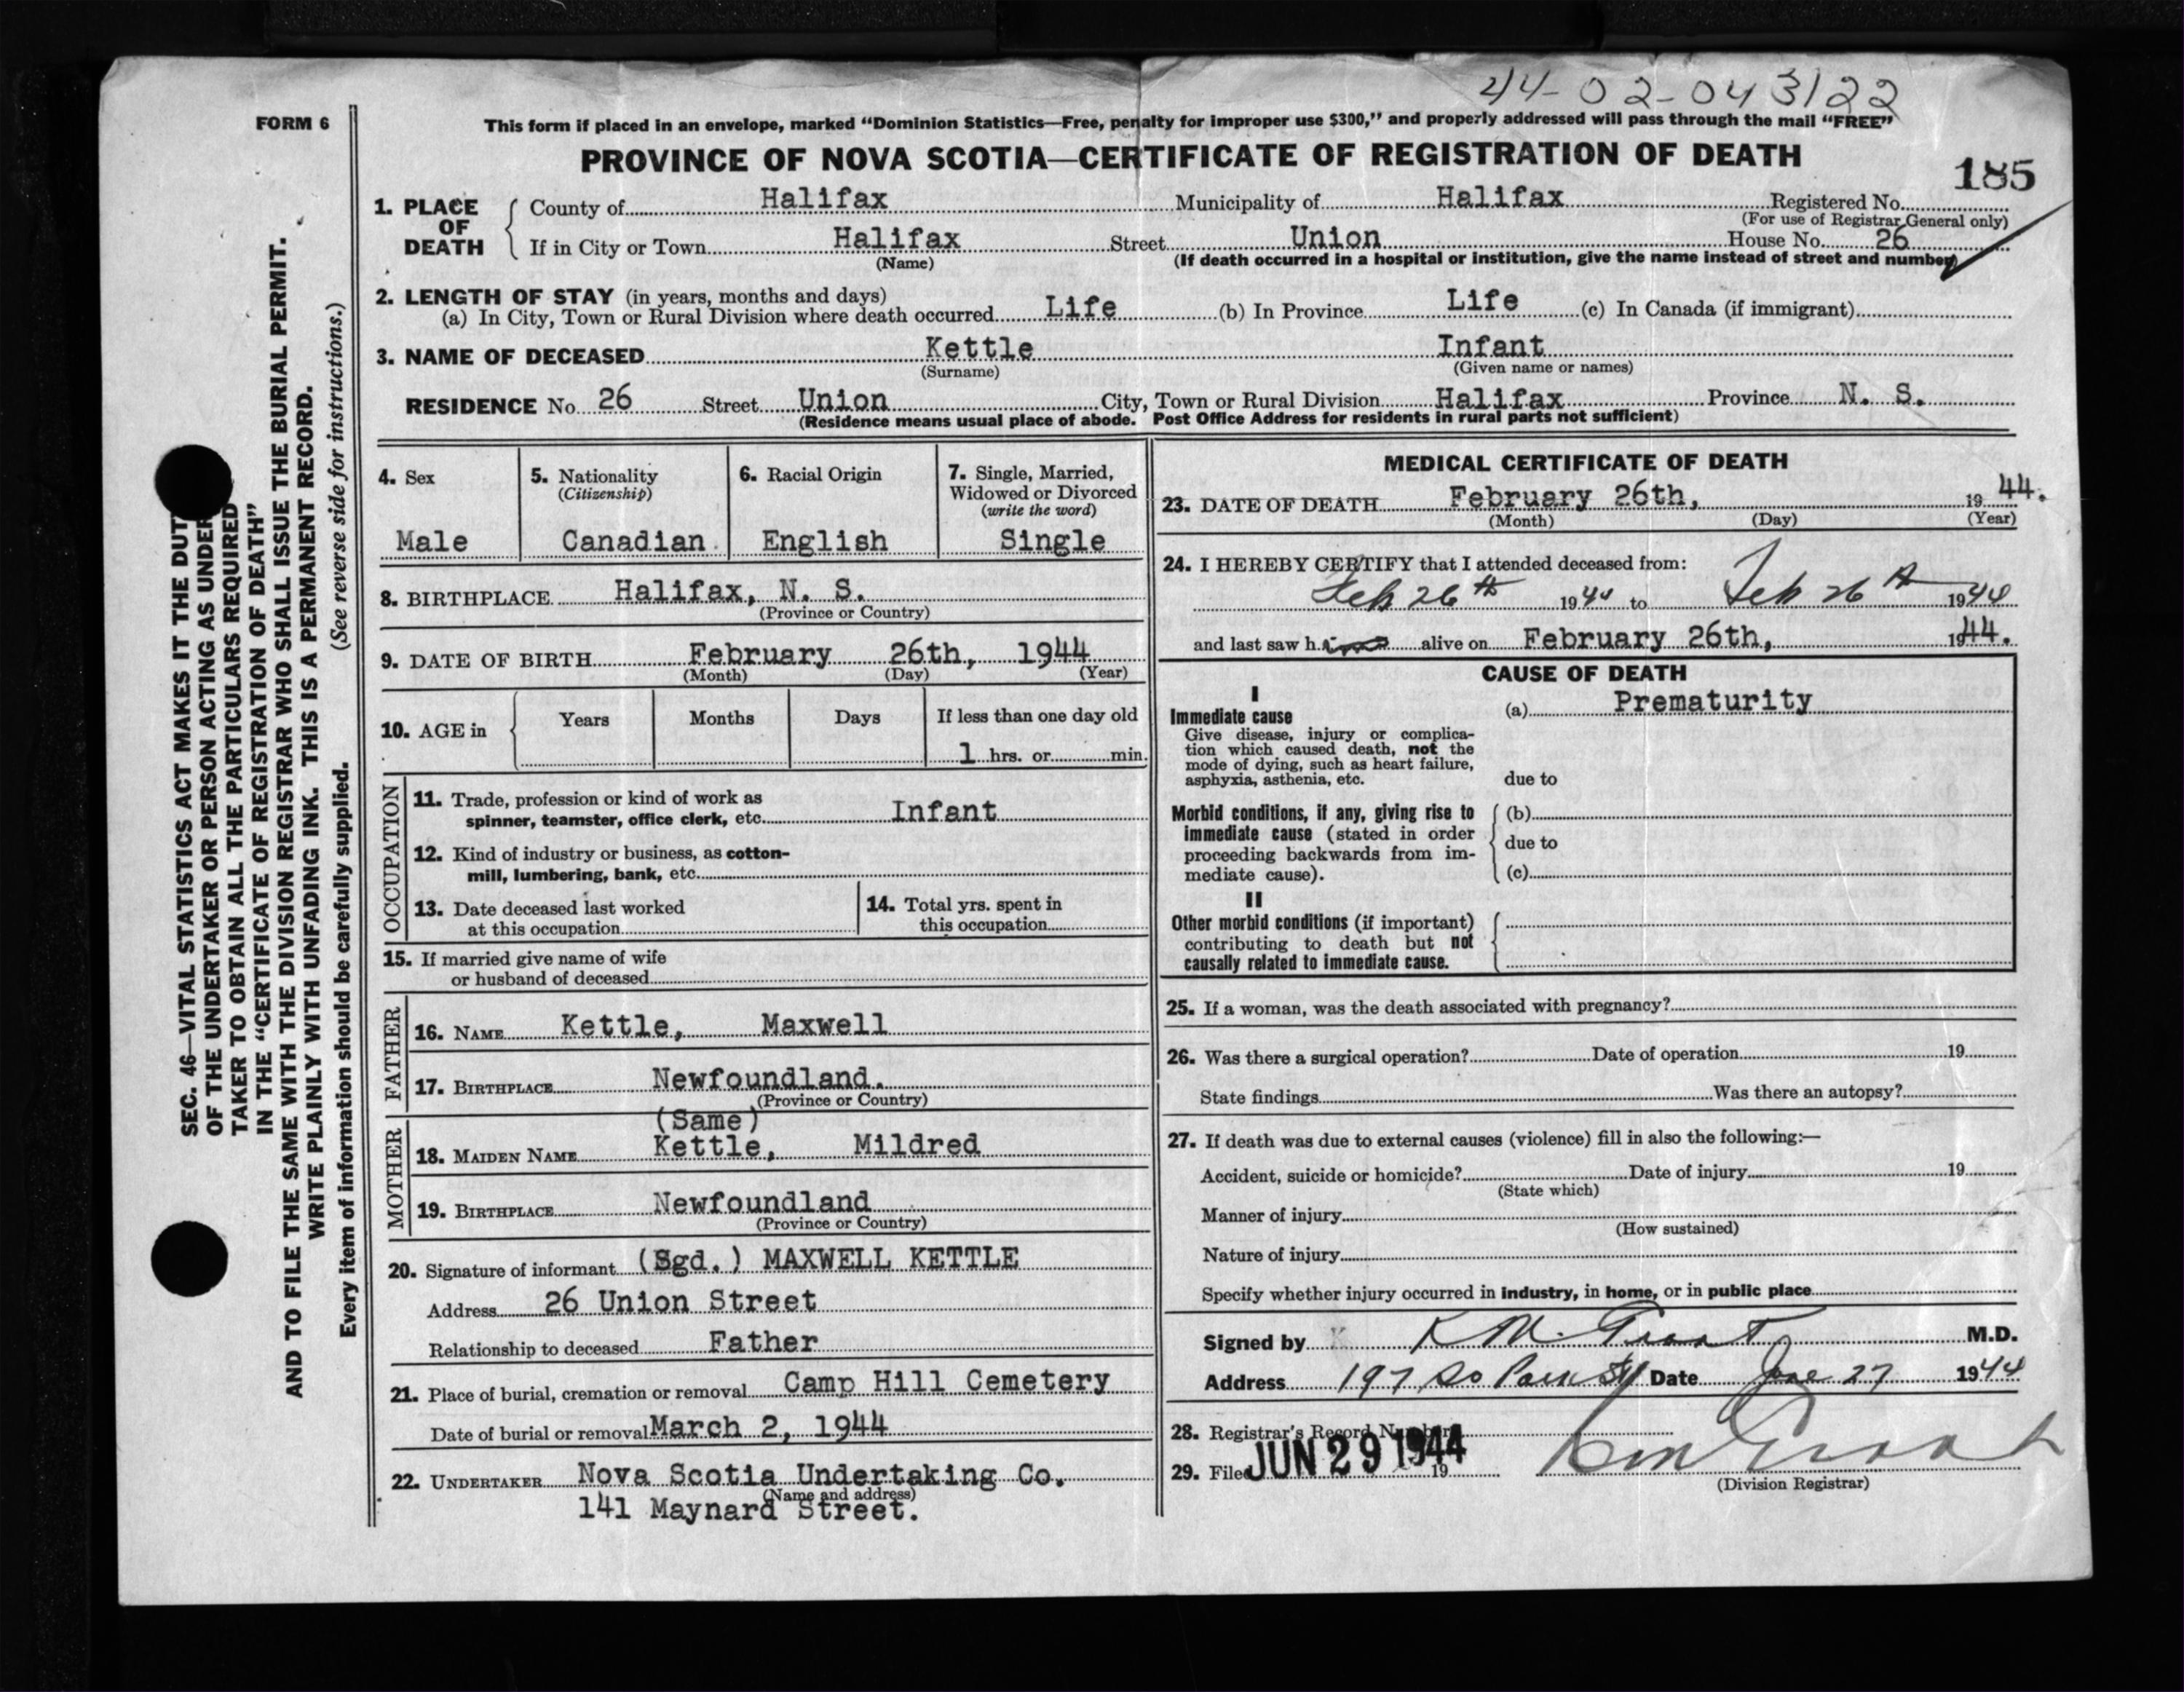 44-02-043122
FORM 6
This form if placed in an envelope, marked "Dominion Statistics—Free, penalty for improper use $300," and properly addressed will pass through the mail "FREE"
PROVINCE OF NOVA SCOTIA—CERTIFICATE OF REGISTRATION OF DEATH
185
1. PLACE OF DEATH
County of Halifax Municipality of Halifax Registered No.
(For use of Registrar General only)
If in City or Town Halifax Street Union House No. 26
(Name) (If death occurred in a hospital or institution, give the name instead of street and number)
2. LENGTH OF STAY (in years, months and days)
(a) In City, Town or Rural Division where death occurred Life (b) In Province Life (c) In Canada (if immigrant)
3. NAME OF DECEASED Kettle Infant
(Surname) (Given name or names)
RESIDENCE No 26 Street Union City, Town or Rural Division Halifax Province N. S.
(Residence means usual place of abode. Post Office Address for residents in rural parts not sufficient)
SEC. 46—VITAL STATISTICS ACT MAKES IT THE DUT
OF THE UNDERTAKER OR PERSON ACTING AS UNDER
TAKER TO OBTAIN ALL THE PARTICULARS REQUIRED
IN THE "CERTIFICATE OF REGISTRATION OF DEATH"
AND TO FILE THE SAME WITH THE DIVISION REGISTRAR WHO SHALL ISSUE THE BURIAL PERMIT.
WRITE PLAINLY WITH UNFADING INK. THIS IS A PERMANENT RECORD.
Every item of information should be carefully supplied. (See reverse side for instructions.)
4. Sex
Male
5. Nationality
(Citizenship)
Canadian
6. Racial Origin
English
7. Single, Married,
Widowed or Divorced
(write the word)
Single
8. BIRTHPLACE Halifax, N. S.
(Province or Country)
9. DATE OF BIRTH February 26th, 1944
(Month) (Day) (Year)
10. AGE in
Years Months Days If less than one day old
1 hrs. or min.
OCCUPATION
11. Trade, profession or kind of work as
spinner, teamster, office clerk, etc. Infant
12. Kind of industry or business, as cotton-
mill, lumbering, bank, etc.
13. Date deceased last worked
at this occupation
14. Total yrs. spent in
this occupation
15. If married give name of wife
or husband of deceased
FATHER
16. NAME Kettle, Maxwell
17. BIRTHPLACE Newfoundland.
(Province or Country)
MOTHER
(Same)
18. MAIDEN NAME Kettle, Mildred
19. BIRTHPLACE Newfoundland
(Province or Country)
20. Signature of informant (Sgd.) MAXWELL KETTLE
Address 26 Union Street
Relationship to deceased Father
21. Place of burial, cremation or removal Camp Hill Cemetery
Date of burial or removal March 2, 1944
22. UNDERTAKER Nova Scotia Undertaking Co.
(Name and address)
141 Maynard Street.
MEDICAL CERTIFICATE OF DEATH
23. DATE OF DEATH February 26th, 1944.
(Month) (Day) (Year)
24. I HEREBY CERTIFY that I attended deceased from:
Feb 26th 1944 to Feb 26th 1944
and last saw him alive on February 26th, 1944.
CAUSE OF DEATH
I
Immediate cause
Give disease, injury or complica-
tion which caused death, not the
mode of dying, such as heart failure,
asphyxia, asthenia, etc.
(a) Prematurity
due to
Morbid conditions, if any, giving rise to
immediate cause (stated in order
proceeding backwards from im-
mediate cause).
(b)
due to
(c)
II
Other morbid conditions (if important)
contributing to death but not
causally related to immediate cause.
25. If a woman, was the death associated with pregnancy?
26. Was there a surgical operation? Date of operation 19
State findings Was there an autopsy?
27. If death was due to external causes (violence) fill in also the following:—
Accident, suicide or homicide? Date of injury 19
(State which)
Manner of injury
(How sustained)
Nature of injury
Specify whether injury occurred in industry, in home, or in public place
Signed by K M. Grant M.D.
Address 197 So Park St Date June 27 1944
28. Registrar's Record Number
29. Filed JUN 29 1944 19
(Division Registrar)